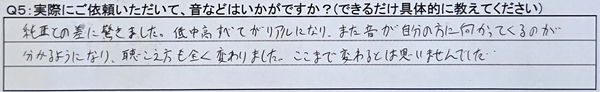 Q5：実際にご依頼いただいて、音などはいかがですか？（できるだけ具体的に教えてください）
純正との差に驚きました。低中高すべてがリアルになり、また音が自分の方に向かってくるのが
分かるようになり、聴こえ方も全く変わりました。ここまで変わるとは思いませんでした…